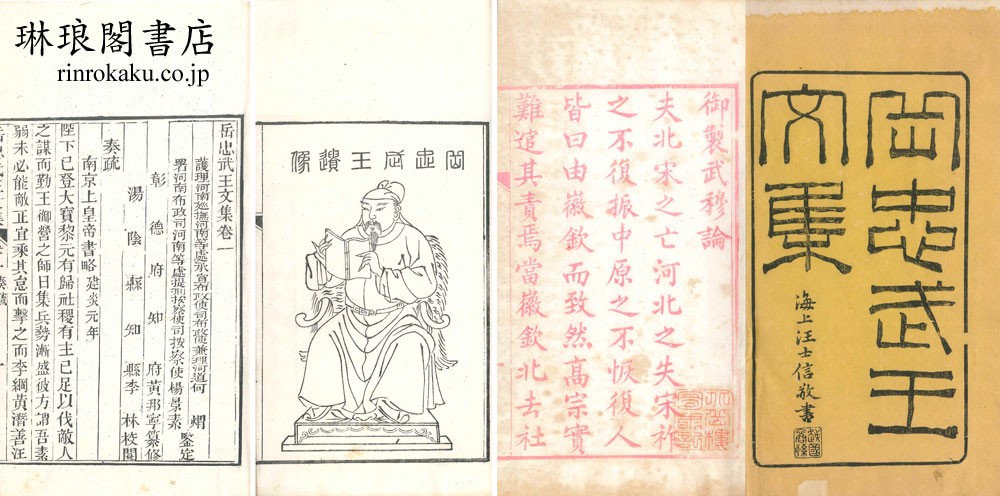 琳琅閣書店
rinrokaku.co.jp
岳忠武王
文集
海上汪士信敬書
御製武穆論
夫北宋之亡河北之失宋祚
之不復振中原之不恢復人
皆曰由徽欽而致然高宗實
難逭其責焉當徽欽北去社
岳忠武王遺像
岳忠武王文集卷一
護理河南巡撫河南等處承宣布政使司布政使兼理河道何 煟
署河南布政司河南等處提刑按察使司按察使楊景素 鑒定
彰德府知府黃邦寧纂修
湯陰縣知縣李林校閱
奏疏
南京上皇帝書略 建炎元年
陛下已登大寶黎元有歸社稷有主已足以伐敵人
之謀而勤王御營之師日集兵勢漸盛彼方謂吾素
弱未必能敵正宜乘其怠而擊之而李綱黃潛善汪